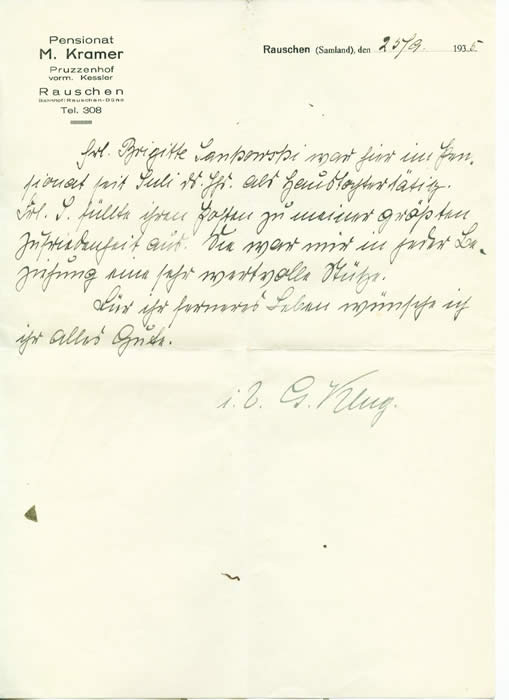 Pensionat
M. Kramer
Pruzzenhof
vorm. Kessler
Rauschen
Bahnhof: Rauschen-Düne
Tel. 308
Rauschen (Samland), den 25/9. 1935
Frl. Brigitte Sankowski war hier im Pen-
sionat seit Juli ds Jhs. als Haustochter tätig.
Frl. S. füllte ihren Posten zu meiner größten
Zufriedenheit aus. Sie war mir in jeder Be-
ziehung eine sehr wertvolle Stütze.
Für ihr ferneres Leben wünsche ich
ihr alles Gute.
i. V. G. Klug.